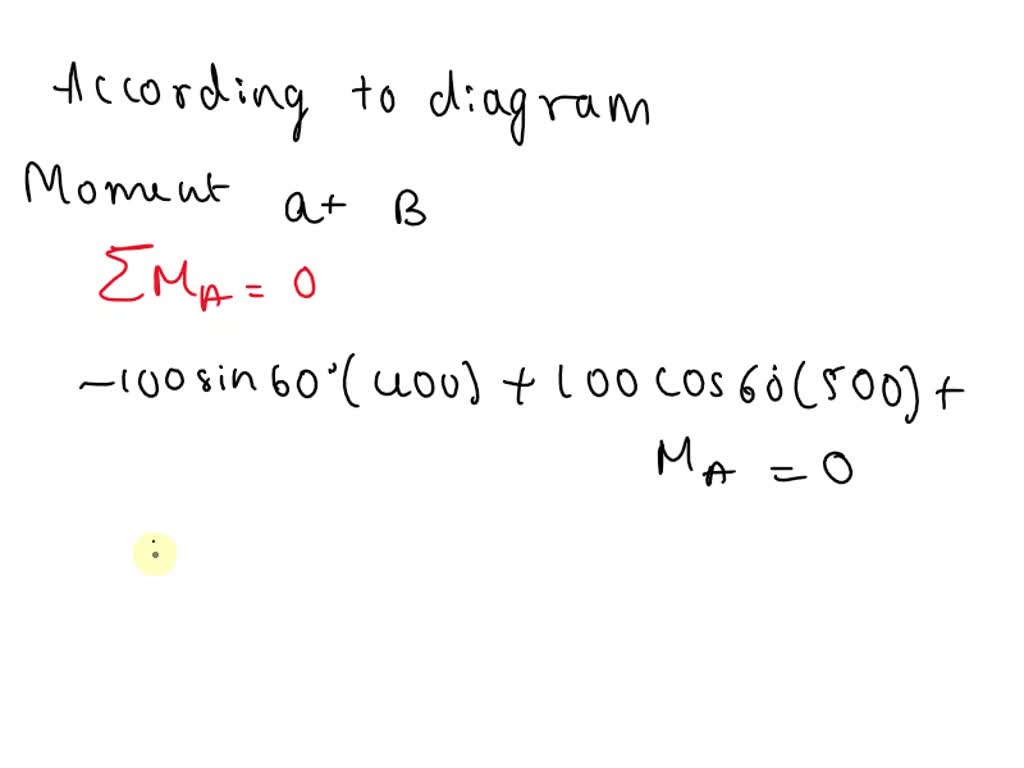 According to diagram
Moment at B
ΣM_A = 0
-100 sin 60°(400) + 100 cos 60(500) +
M_A = 0